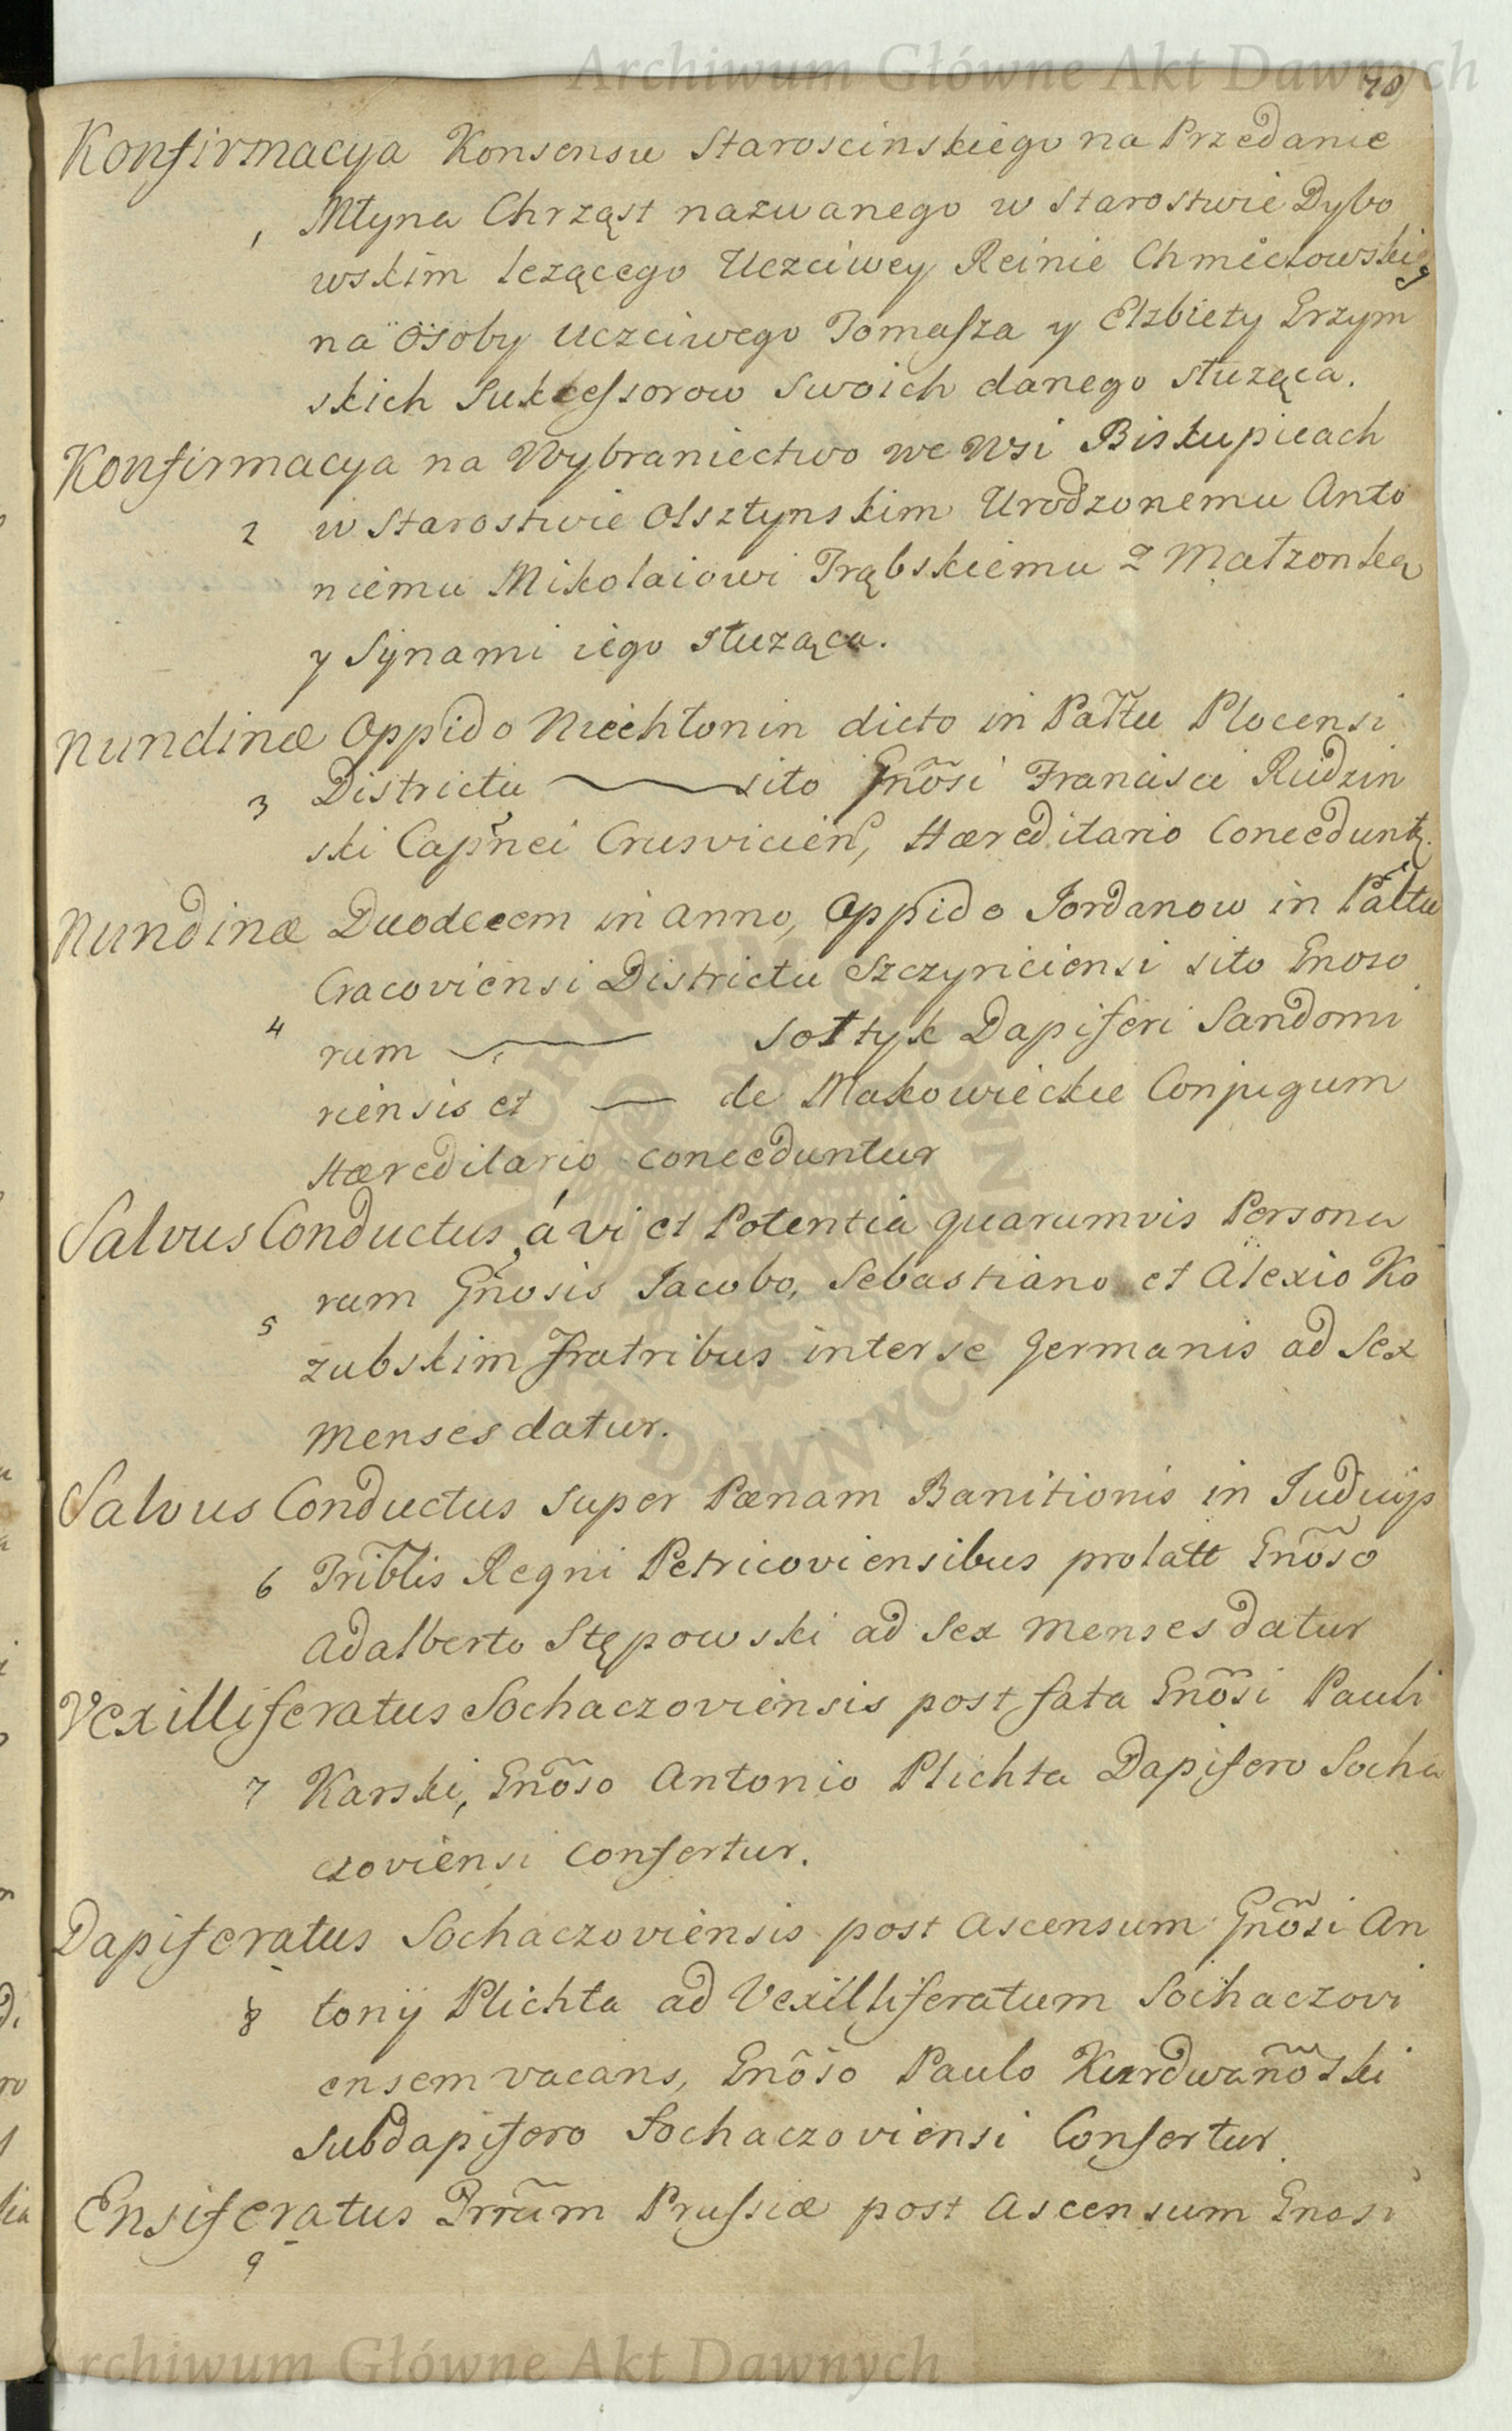 Archiwum Główne Akt Dawnych
70
Konfirmacya Konsensu Staroscinskiego na Przedanie
1 Młyna Chrząst nazwanego w Starostwie Dybo
wskim lezącego Uczciwey Reinie Chmielowskiey
na Osoby Uczciwego Tomasza y Elzbiety Grzym
skich Sukcessorow Swoich danego słuząca.
Konfirmacya na Wybraniectwo we Wsi Biskupicach
2 w Starostwie Olsztynskim Urodzonemu Anto
niemu Mikolaiowi Trąbskiemu z Małzonką
y Synami iego słuząca.
Nundinæ Oppido Niechłonin dicto in Pałtu Plocensi
3 Districtu sito Gnõsi Francisci Rudzin
ski Capñei Crusvicien, Hæreditario Conceduntr.
Nundinæ Duodecem in anno, Oppido Jordanow in Pałtu
Cracoviensi Districtu Szczyriciensi sito Gnoso
4 rum Sołtyk Dapiferi Sandomi
riensis et de Makowieckie Conjugum
Hæreditario conceduntur
Salvus Conductus, á vi et Potentia quarumvis Persona
5 rum Gñosis Jacobo, Sebastiano et Alexio Ko
zubskim Fratribus inter se Germanis ad Sex
Menses datur.
Salvus Conductus super Pænam Banitionis in Judicijs
6 Tribłis Regni Petricoviensibus prolatt Gnõso
Adalberto Stępowski ad Sex Menses datur
Vexilliferatus Sochaczoviensis post fata Gnõsi Pauli
7 Karski, Gnõso Antonio Plichta Dapifero Socha
czoviensi Confertur.
Dapiferatus Sochaczoviensis post ascensum Gnõsi An
8 tonij Plichta ad Vexilliferatum Sochaczovi
ensem vacans, Gnõso Paulo Kurdwañoski
Subdapifero Sochaczoviensi Confertur.
Ensiferatus Trrãm Prussiæ post ascensum Gnosi
9
Archiwum Główne Akt Dawnych